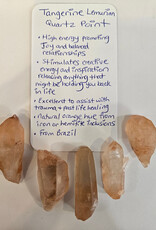 Tangerine Lemurian
Quartz Point
• High energy promoting
Joy and balanced
relationships
• Stimulates creative
energy and inspiration
releasing anything that
might be holding you back
in life
• Excellent to assist with
trauma & past life healing
• Natural orange hue from
iron or hematite inclusions
• From Brazil